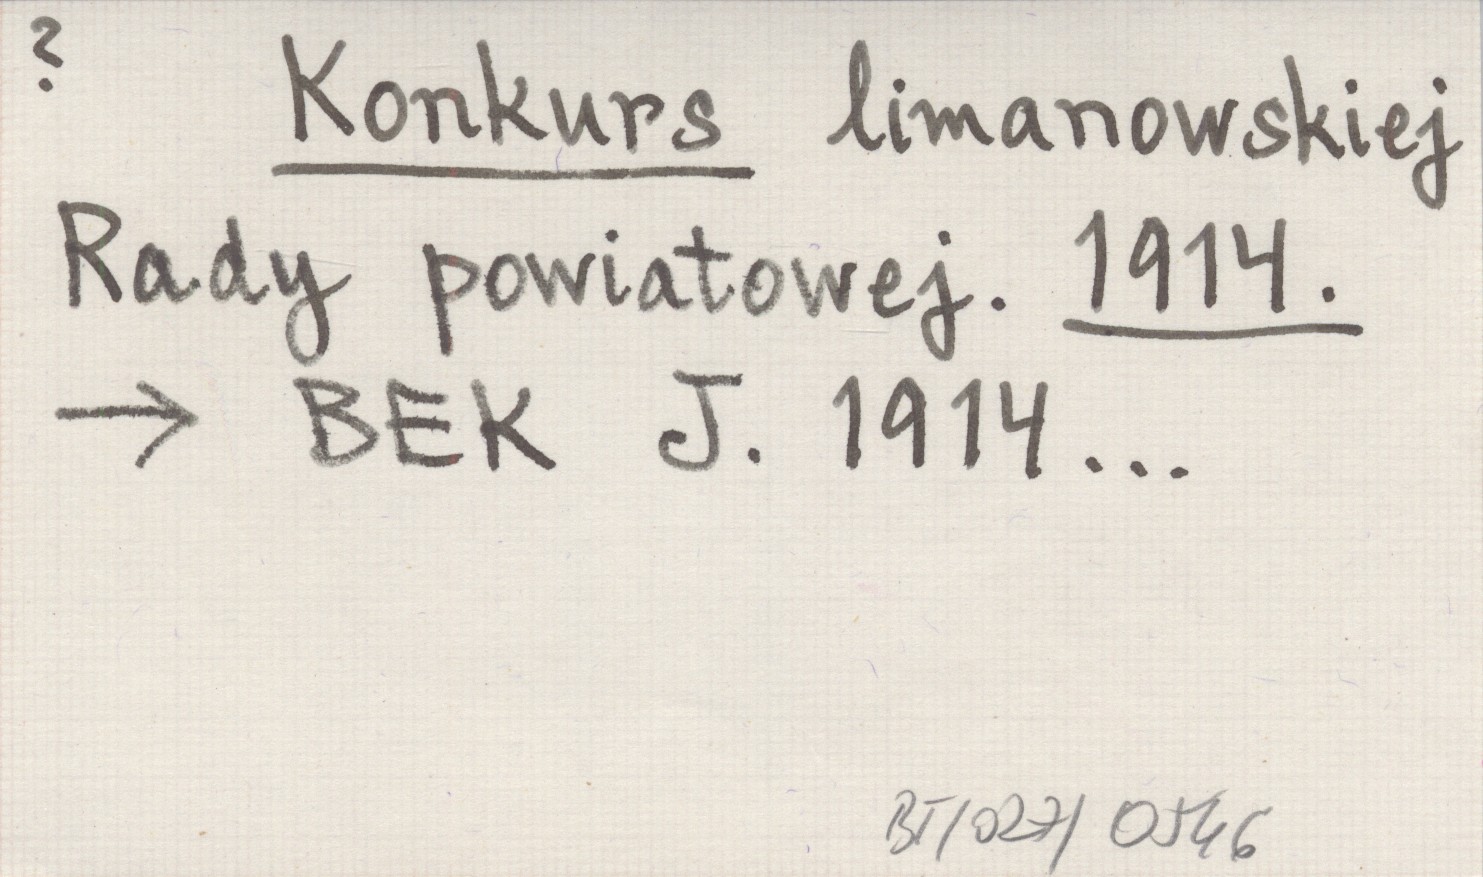 ?
Konkurs limanowskiej
Rady powiatowej. 1914.
→ BEK J. 1914...
BT/027/0546